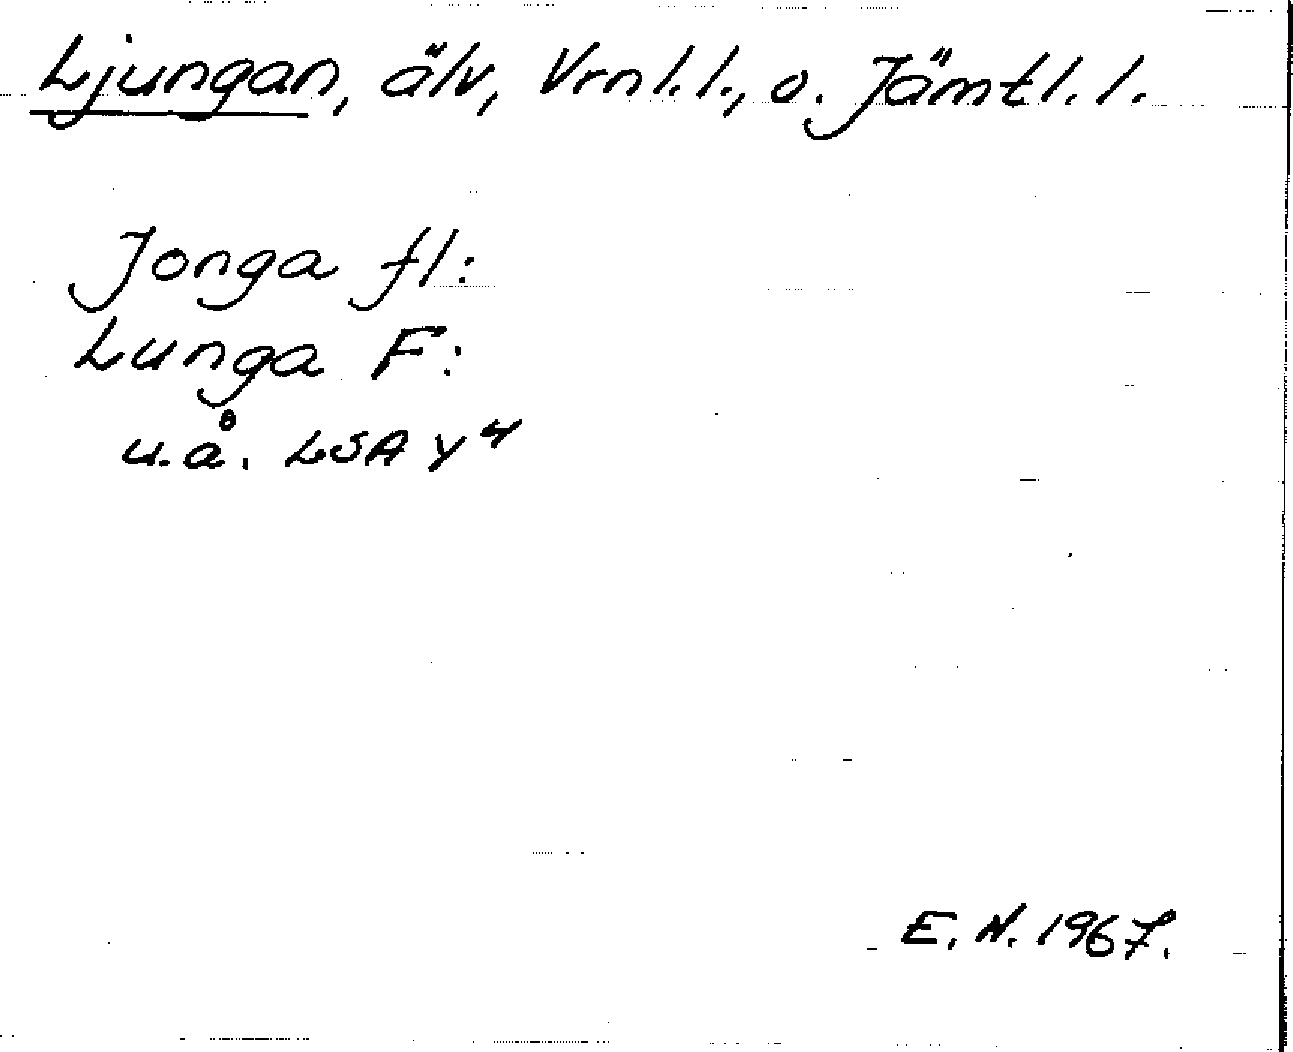 Ljungan, älv, Vrnl.l., o. Jämtl.l.
Jonga fl:
Lunga F:
u.å. LSA Y 4
E.N. 1967.